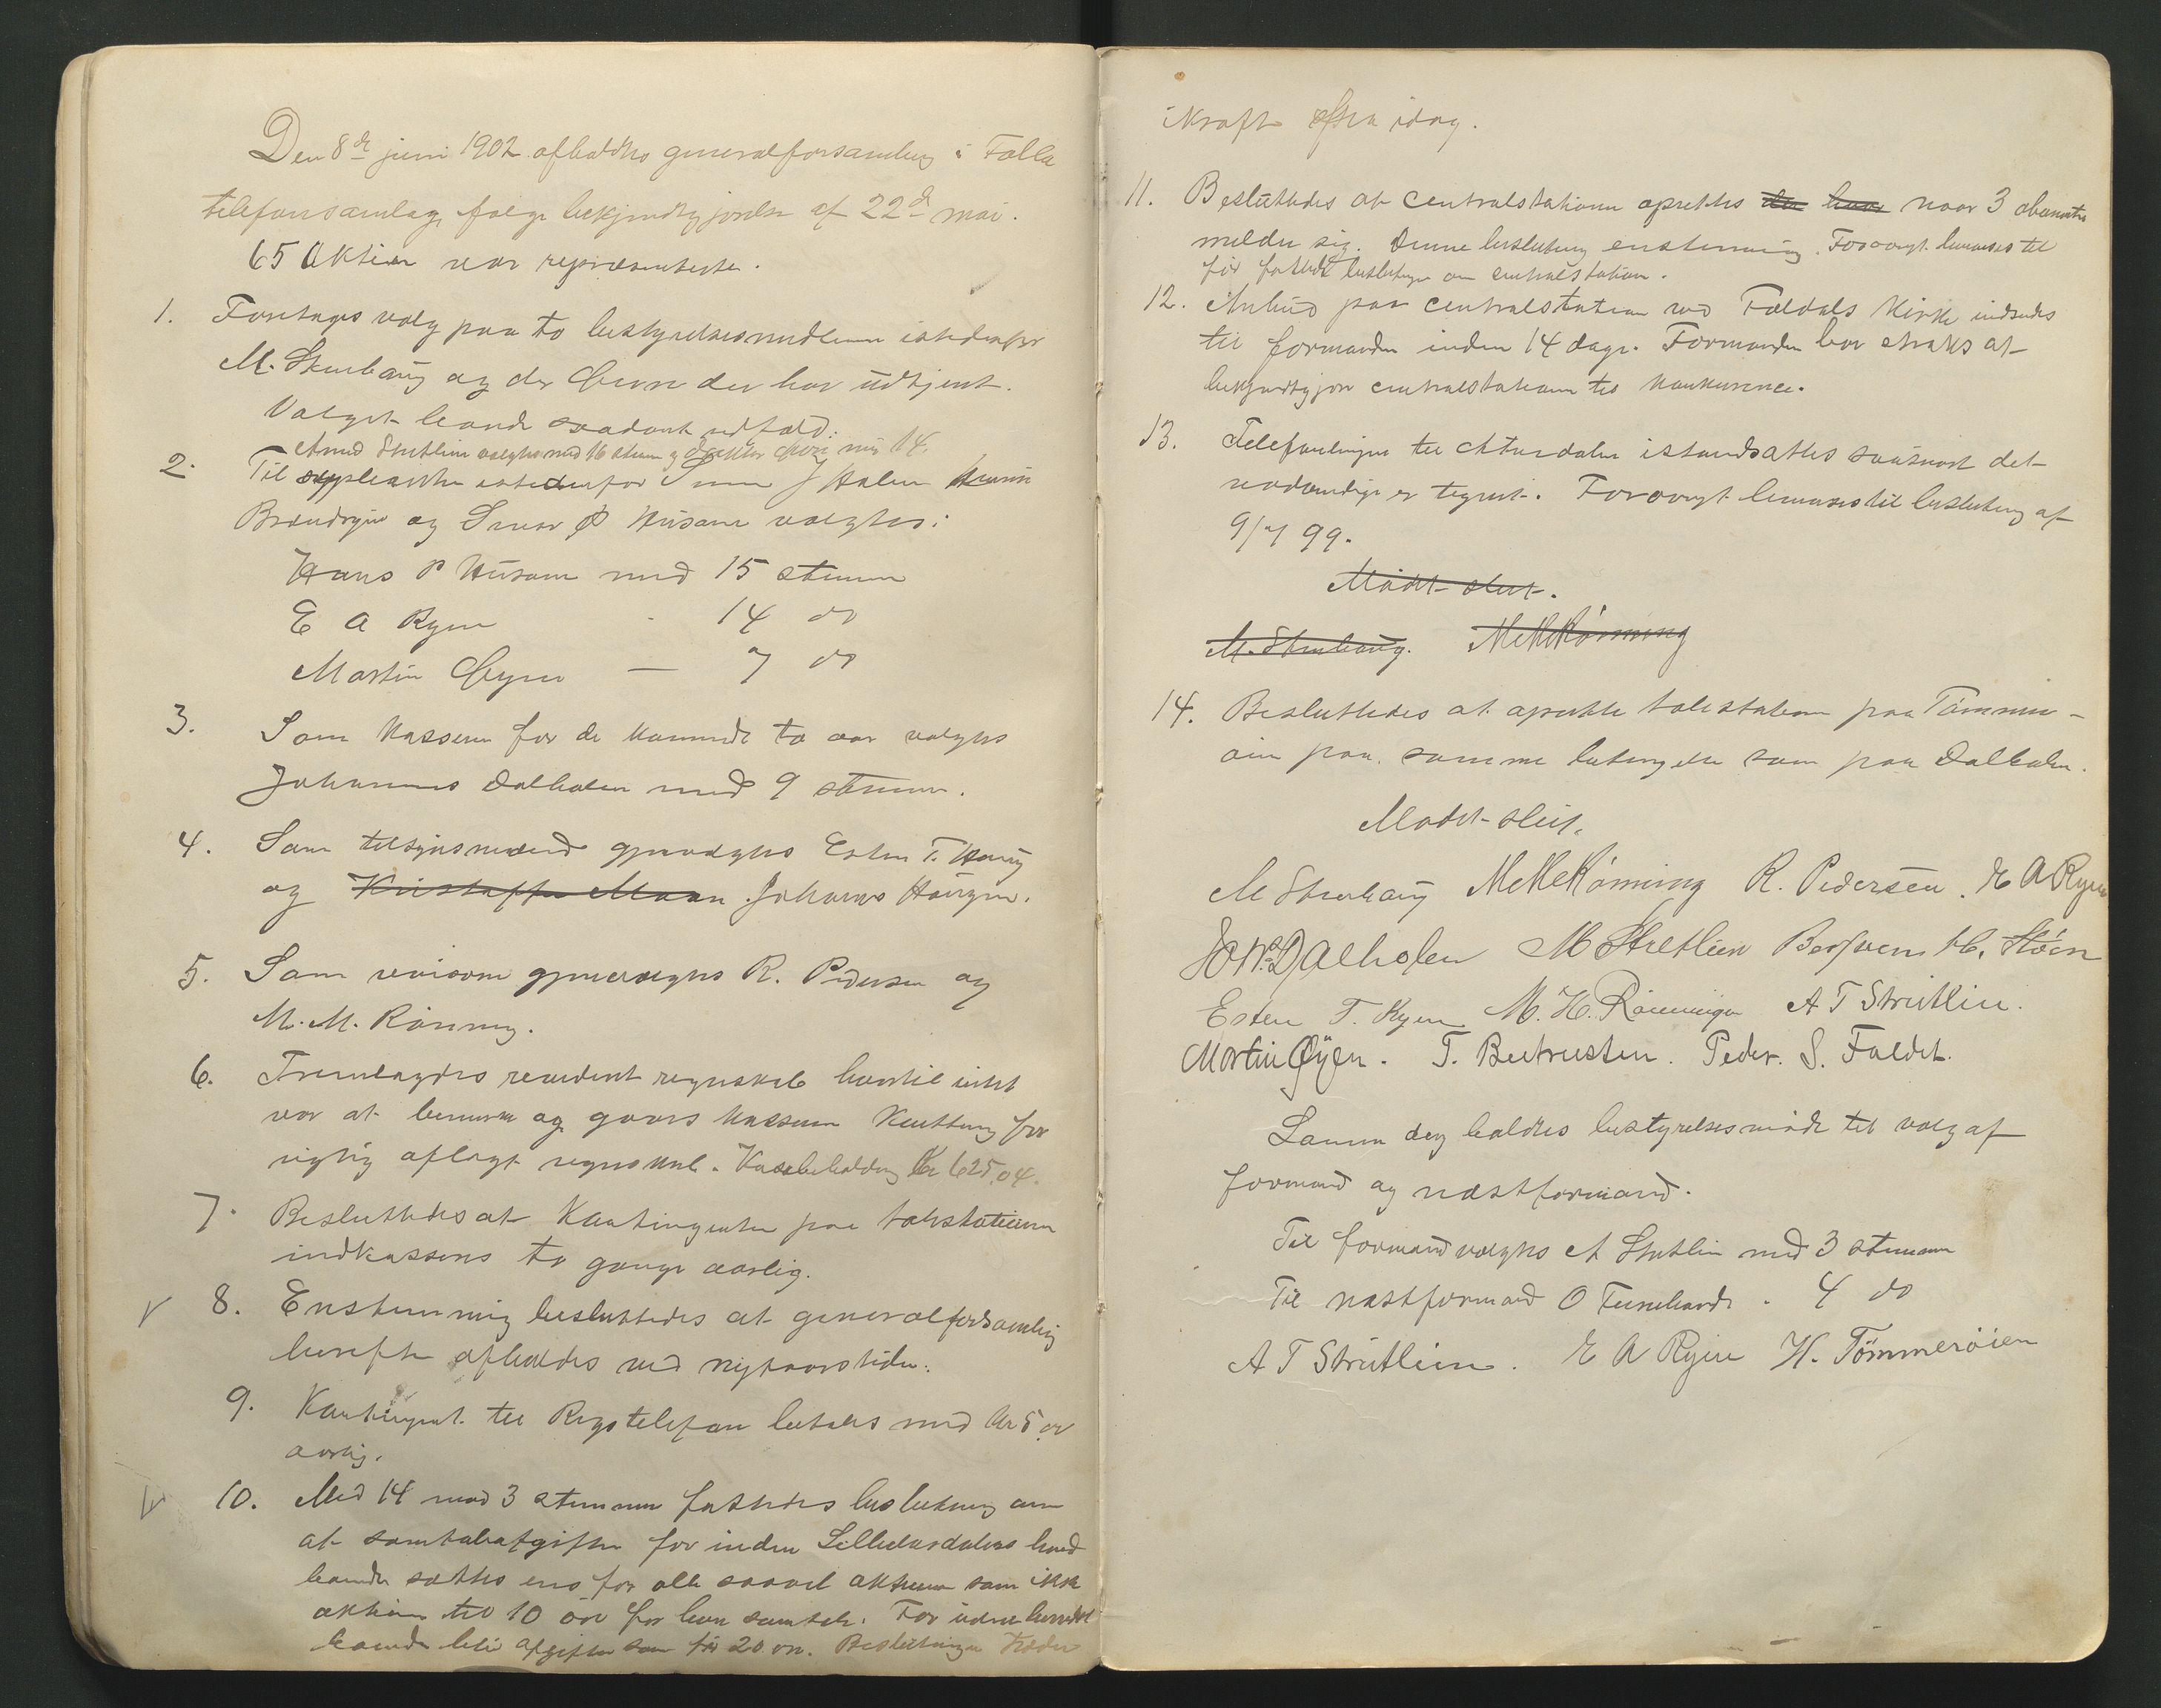 Den 8de juni 1902 afholdtes generalforsamling i Folla
telefonsamlag, følge bekjendtgjørelse af 22de mai.
65 Aktier var repræsenterte.
1. Foretages valg paa to bestyrelsesmedlemmer istedenfor
M. Streehaug og der har udtjent.
Valget havde saadant udfald:
Amund Strutlien valgtes med 16 stemmer og
2. Til suppleanter istedenfor J Halen
og Simen Husom valgtes:
Hans P Husom med 15 stemmer
E A Ryen - 14 do
Martin Øyen — 7 do
3. Som kasserer for de kommende to aar valgtes
Johannes Dalholen med 9 stemmer.
4. Som tilsynsmænd gjenvalgtes Esten T. Haug
og Kristoffer Moan Johannes Haugen.
5. Som revisorer gjenvalgtes R. Pedersen og
M. M. Rönning.
6. Fremlagdes revideret regnskab hvortil intet
var at bemerke og gaves kasserer kvittering for
rigtig aflagt regnskab. Kassebeholdning Kr 625,04.
7. Besluttedes at Kontingenten paa talestationerne
indkasseres to gange aarlig.
8. Enstemmig besluttedes at generalforsamling
herefter afholdes ved nyttaarstider.
9. Kontingent til Rigstelefon betales med kr 5,00
aarlig.
10. Med 14 mod 3 stemmer fattedes beslutning om
at samtaleafgiften for inden Lilleelvdalens hered
sættes ens for alle saavel aktieeier som ikke
aktieeier til 10 öre for hver samtale. For uden herredet
afgiften som før 20 öre. Beslutningen træder
ikraft fra idag.
11. Besluttedes at centralstation oprettes der naar 3 abonenter
melder sig. Denne beslutning enstemmig. Forøvrigt henvises til
før fattede beslutninger om centralstation.
12. Anbud paa centralstation ved Foldals Kirke indsendes
til formanden inden 14 dage. Formanden har straks at
bekjendtgjøre centralstationen til konkurence.
13. Telefonlinjen til Atnedalen istandsættes saasnart det
nødvendige er tegnet. Forøvrigt henvises til beslutning af
9/7 99.
Mødet slut.
M. Streehaug. M M Rönning
14. Besluttedes at oprette talestation paa Tømmer-
øien paa samme betingelse som paa Dalholen.
Mødet slut.
M Streehaug M M Rönning R. Pedersen. E A Ryen
Johs Dalholen M Strutlien H. Støen
Esten T. Ryen M. H. Rönningen A T Strutlien.
Martin Øyen. T. Bertrusten. Peder. S. Foldet.
Samme dag holdtes bestyrelsesmøde til valg af
formand og næstformand.
Til formand valgtes A Strutlien med 3 stemmer
Til næstformand O - 4 do
A T Strutlien. E A Ryen H. Tömmeröien